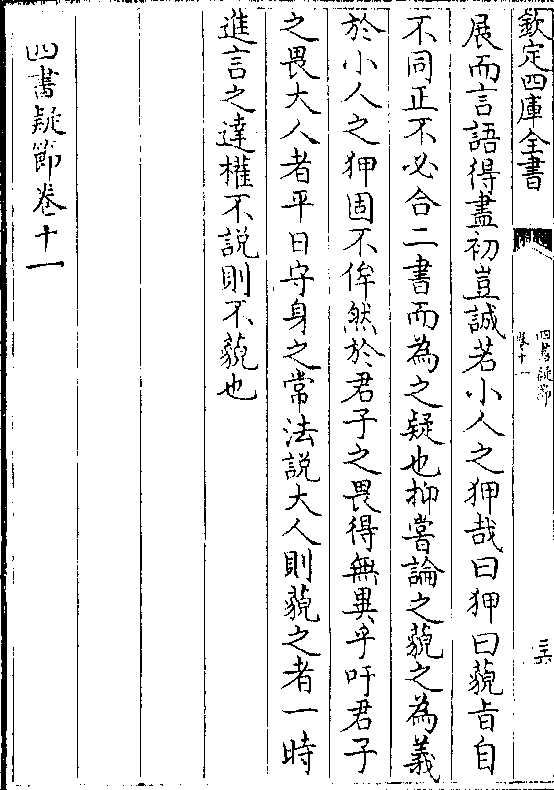 欽定四庫全書
四書疑節
卷十一
三六
展而言語得盡初豈誠若小人之狎哉曰狎曰藐旨自
不同正不必合二書而為之疑也抑嘗論之藐之為義
於小人之狎固不侔然於君子之畏得無異乎吁君子
之畏大人者平日守身之常法説大人則藐之者一時
進言之達權不説則不藐也
四書疑節卷十一